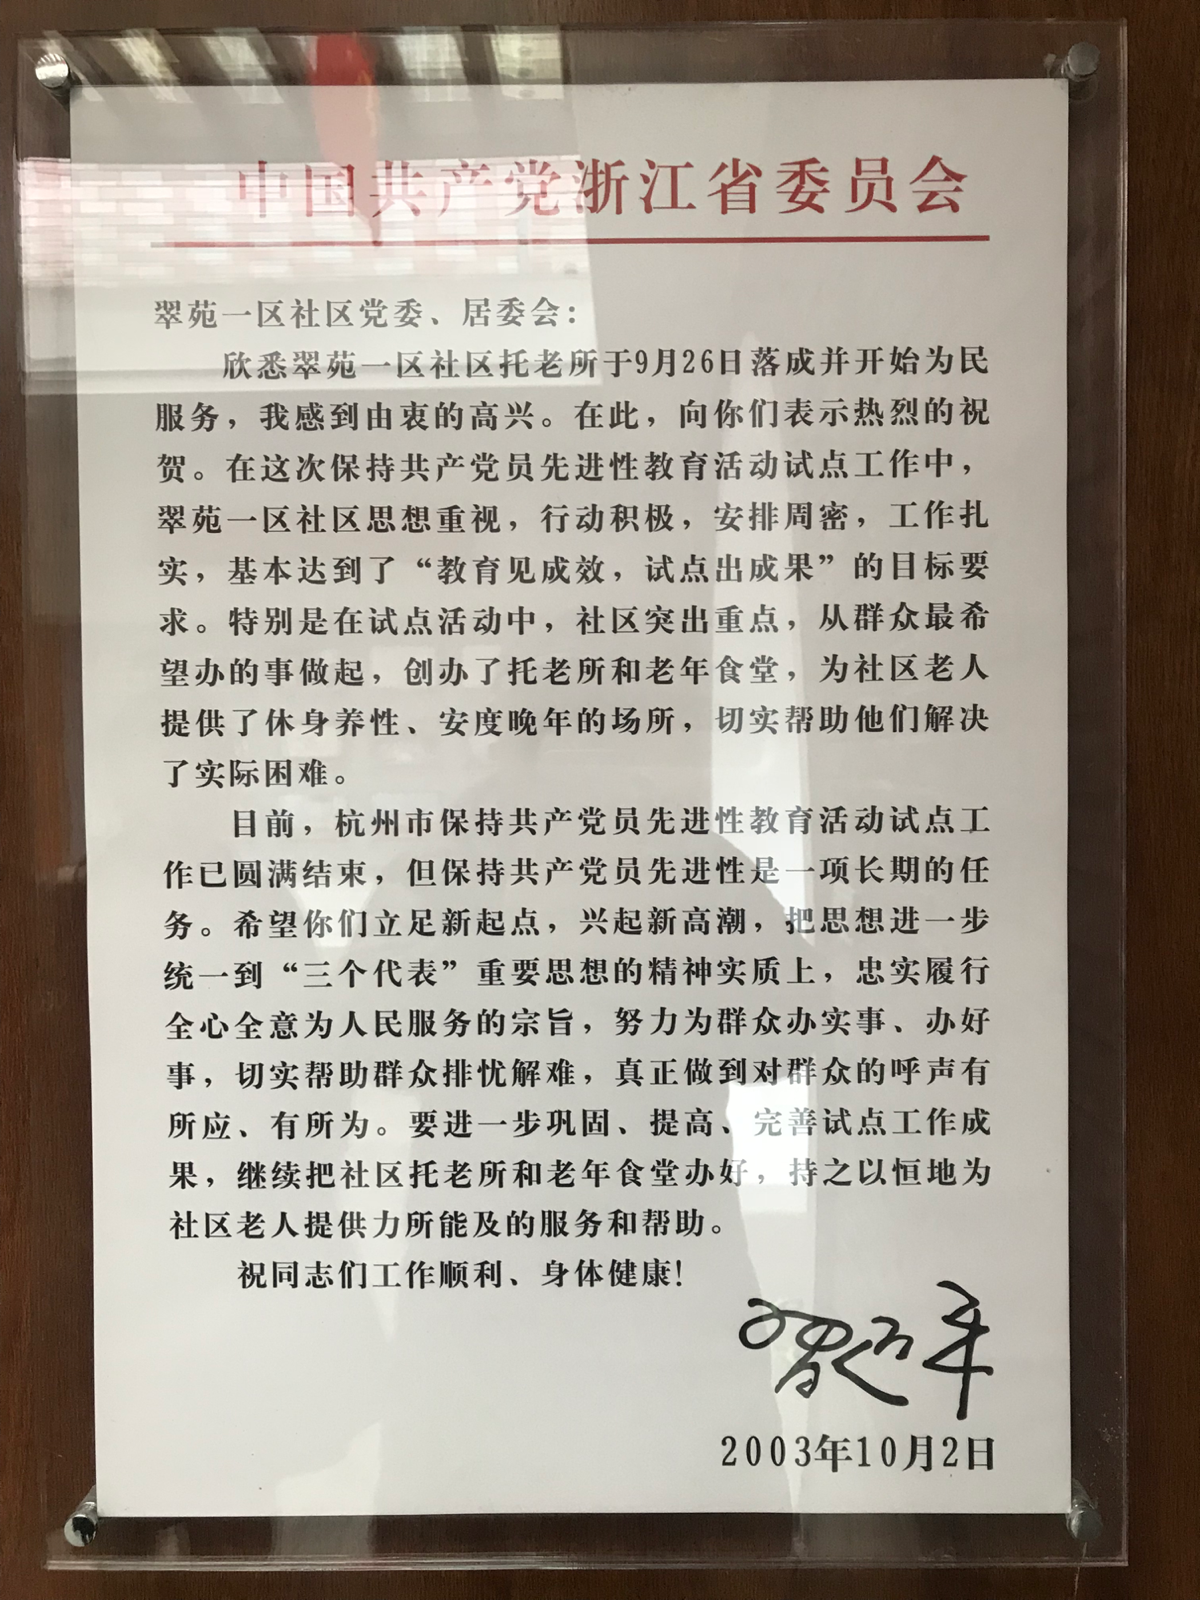 中国共产党浙江省委员会
翠苑一区社区党委、居委会：
欣悉翠苑一区社区托老所于9月26日落成并开始为民
服务，我感到由衷的高兴。在此，向你们表示热烈的祝
贺。在这次保持共产党员先进性教育活动试点工作中，
翠苑一区社区思想重视，行动积极，安排周密，工作扎
实，基本达到了“教育见成效，试点出成果”的目标要
求。特别是在试点活动中，社区突出重点，从群众最希
望办的事做起，创办了托老所和老年食堂，为社区老人
提供了休身养性、安度晚年的场所，切实帮助他们解决
了实际困难。
目前，杭州市保持共产党员先进性教育活动试点工
作已圆满结束，但保持共产党员先进性是一项长期的任
务。希望你们立足新起点，兴起新高潮，把思想进一步
统一到“三个代表”重要思想的精神实质上，忠实履行
全心全意为人民服务的宗旨，努力为群众办实事、办好
事，切实帮助群众排忧解难，真正做到对群众的呼声有
所应、有所为。要进一步巩固、提高、完善试点工作成
果，继续把社区托老所和老年食堂办好，持之以恒地为
社区老人提供力所能及的服务和帮助。
祝同志们工作顺利、身体健康！
习近平
2003年10月2日